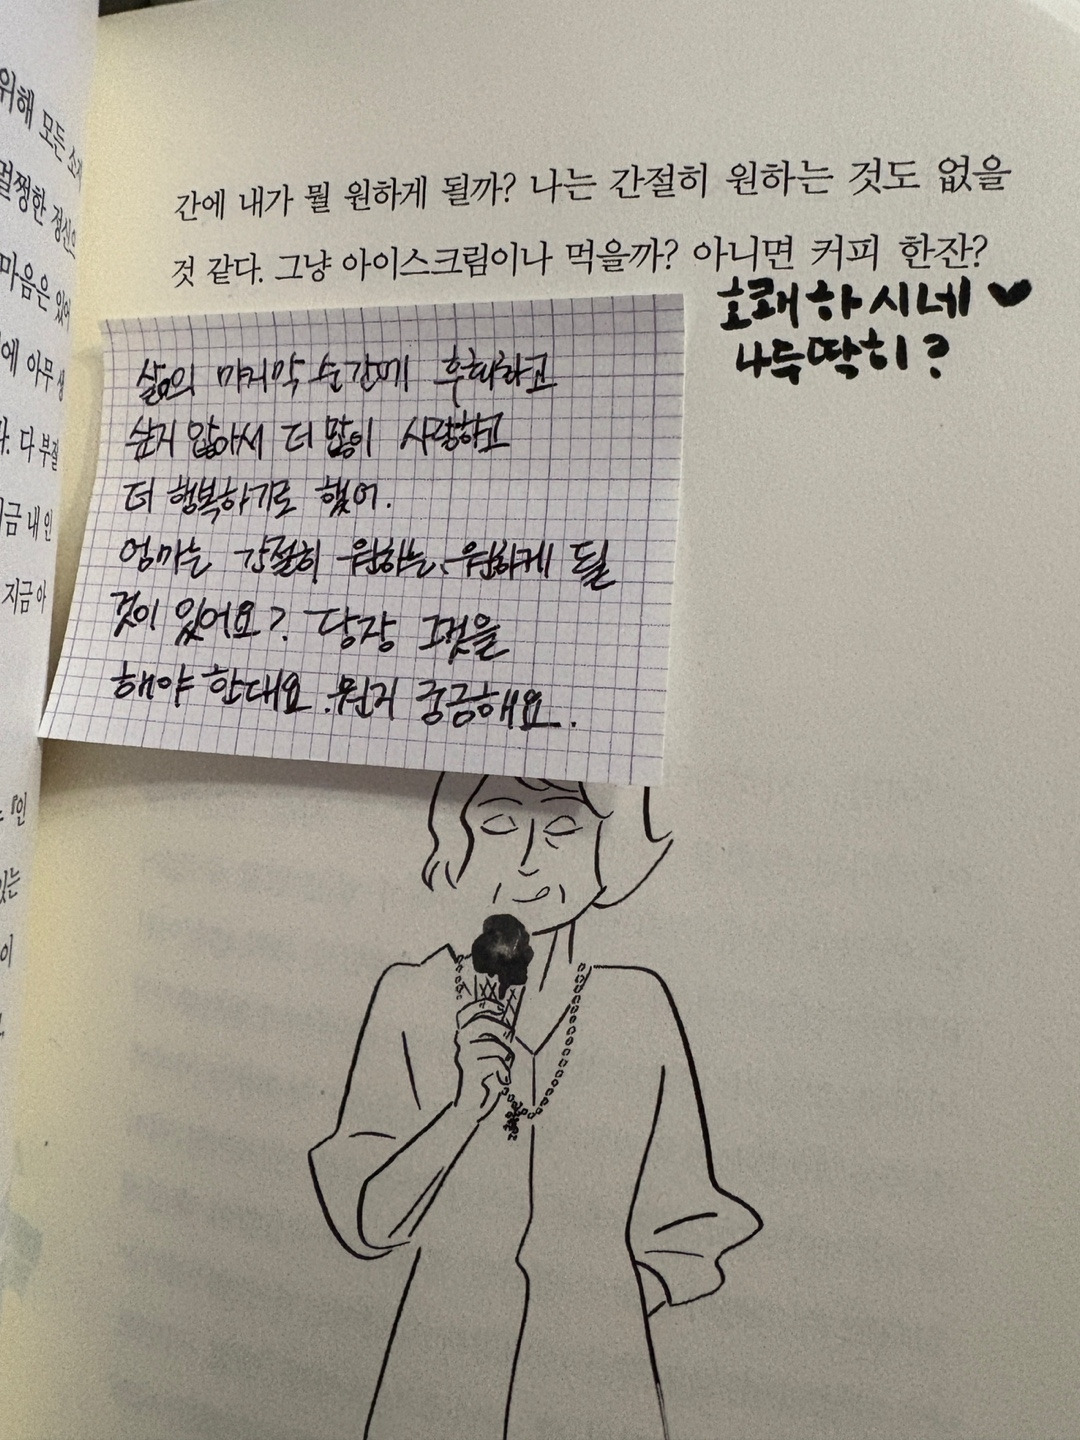 위해 모든
멀쩡한 정신의
마음은 있어
에 아무 생
다. 다 부질
지금 내 인
지금 아
『인
있는
이
간에 내가 뭘 원하게 될까? 나는 간절히 원하는 것도 없을
것 같다. 그냥 아이스크림이나 먹을까? 아니면 커피 한잔?
호쾌하시네 ♥
나두 딱히?
삶의 마지막 순간에 후회하고
싶지 않아서 더 많이 사랑하고
더 행복하기로 했어.
엄마는 간절히 원하는, 원하게 될
것이 있어요? 당장 그것을
해야 한대요. 뭔지 궁금해요..